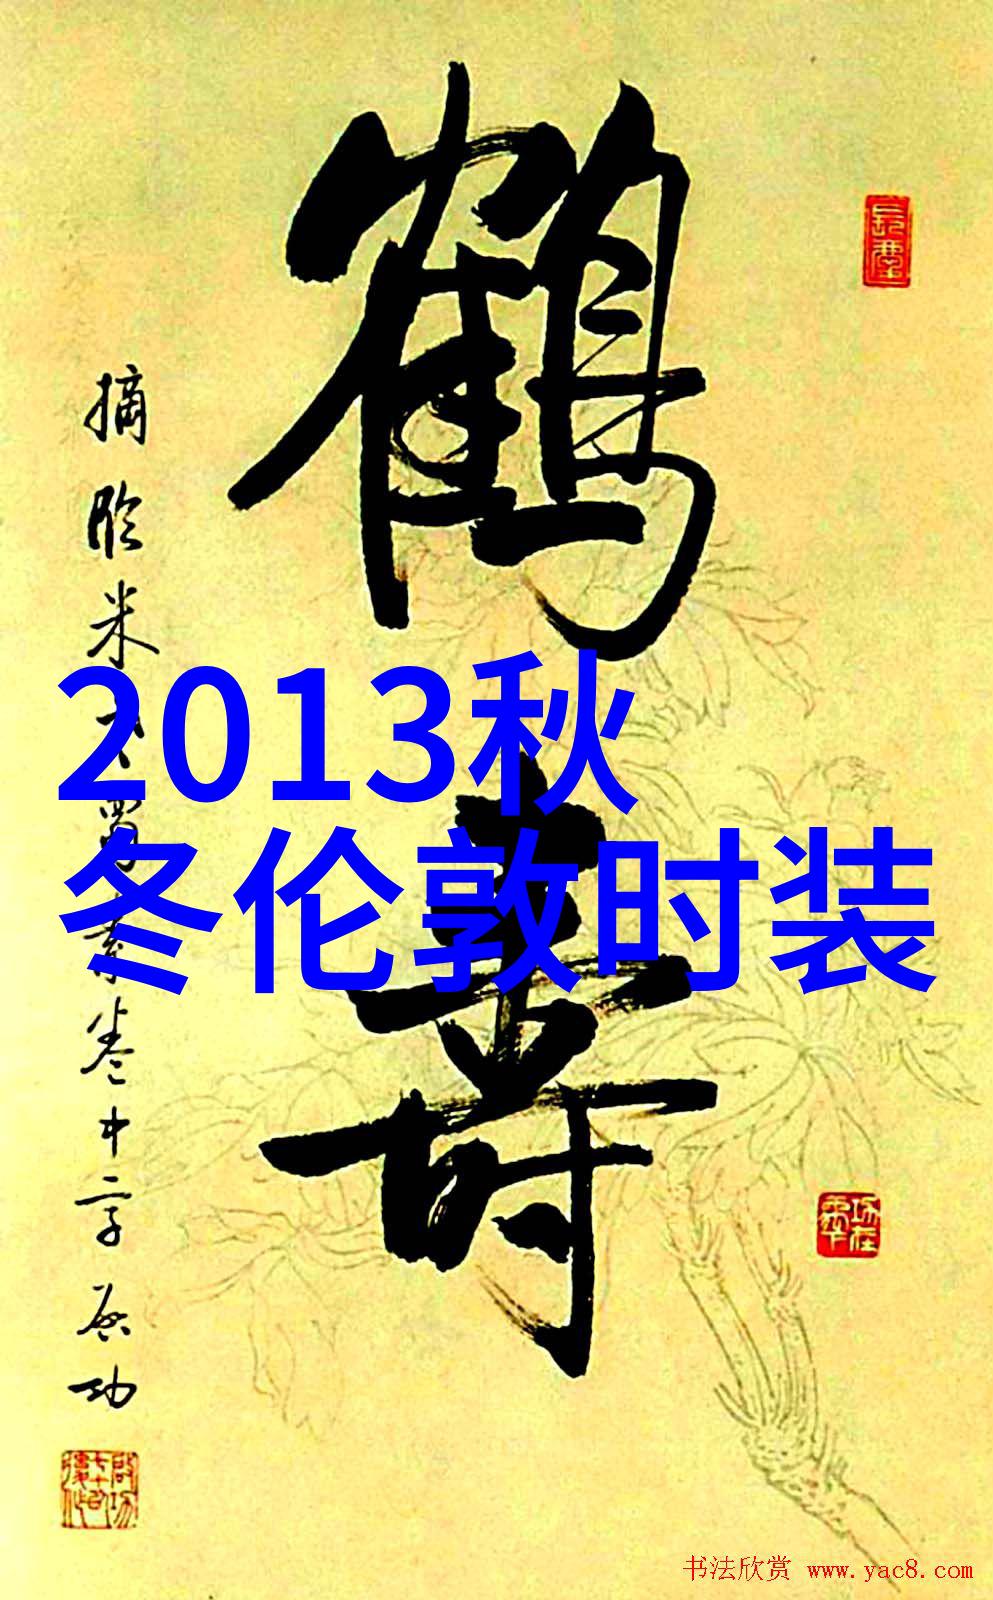 鹤寿
摘临米氏蜀素卷中字 启功
2013秋
冬伦敦时装
书法欣赏 www.yac8.com